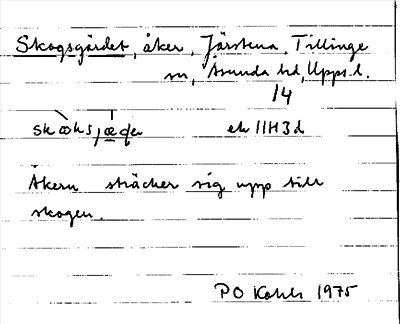 Skogsgärdet, åker, Järstena, Tillinge
sn, Åsunda hd, Upps. l.
14
ek 11H3d
Åkern sträcker sig upp till
skogen.
PO 1975